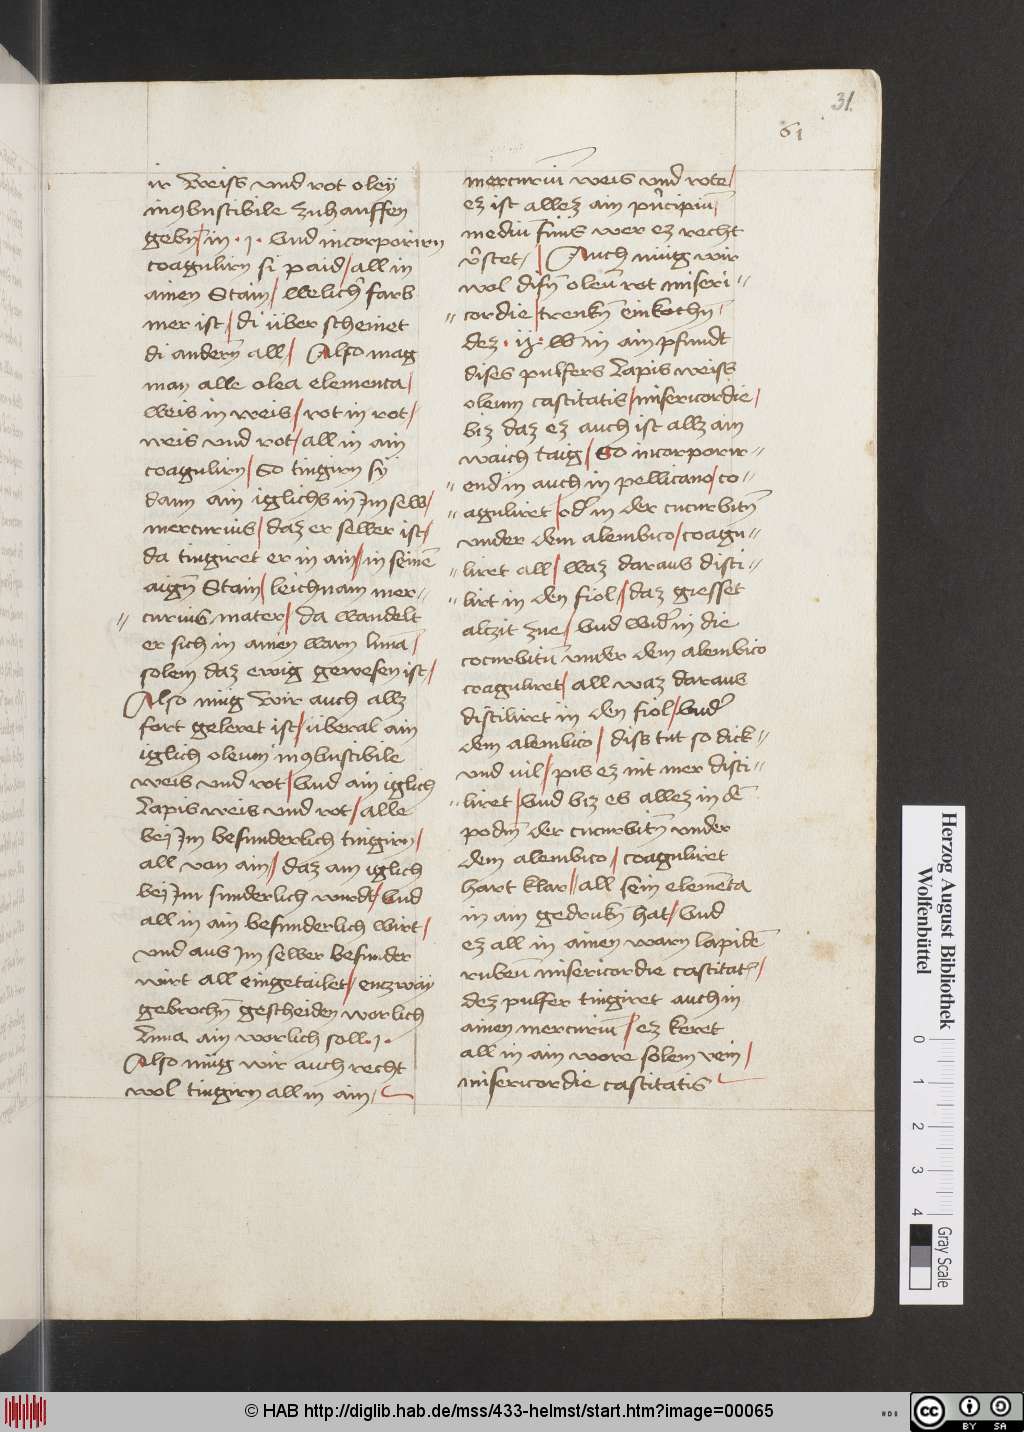 31.
61
ir weiss vnd rot oley
in9bustibile zuhauffen
gebn / in .j. vnd incorporirn
coagulirn si paid / all in
ainen Stain / welicħ farb
mer ist / di über scheinet
di anderñ all / Also mag
man alle olea elementa /
weis in weis / rot in rot /
weis vnd rot / all in ain
coagulirn / So tingirn sÿ
dann ain iglichs in Jm selb /
mercurius / daz er selber ist /
da tinguret er in ain / in seinē
aigñ Stain / leichnam mer//
// curius / mater / da wandelt
er sich in ainen warn lunā /
solem daz ewig gewesen ist /
Also müg wir auch allz
fort geleret ist / überal ain
iglich oleum in9bustibile
weis vnd rot / vnd ain iglich
Lapis weis vnd rot / alle
bei Jm besunderlich tingirn /
all van ain / daz ain iglich
bei Jm sunderlich wirdt / vnd
all in ain besunderlich wirt /
vnd aus Jm selber besunder
wirt all eingetailet / enczwaÿ
gebrochñ gescheiden worlich
Luna ain worlich soll .j.
Also müg wir auch recht
wol tingirn all in ain /
mercuriū weis vnd rote /
ez ist allez ain pricipiū /
mediū finis wer ez recht
v̄stet / Auch müg wir
wol disñ oleū rot miseri//
// cordie / trenkñ einkochñ /
dez . ij . lb in ain pfundt
dises pulfers Lapis weiss
oleum castitatis / misericordie /
biz daz ez auch ist allz ain
waich taig / So incorporir//
// end in auch in pellicano / co//
// aguliret / od̄ in der cucurbitñ
vnder dem alembico / coagu//
// liret all / waz daraus disti//
// lirt in den fiol / daz giesset
alczit zue / vnd wid̄ in die
cocurbitū vnder dem alembico
coaguliret / all waz daraus
distiliret in den fiol / vnd̄
dem alembico / diss tut so dick//
vnd uil / pis ez nit mer disti//
// liret / vnd biz es allez in dē
podñ der cucurbitñ vnder
dem alembico / coaguliret
hart klar / all sein elemēta
in ain gedrukñ hat / vnd
ez all in ainen warn lapidē
rubeū misericordie castitat~ /
dez pulfer tingiret auch in
ainen mercuriū / ez keret
all in ain wore solem vein /
misericordie castitatis
Herzog August Bibliothek
Wolfenbüttel
0 1 2 3 4
Gray Scale
© HAB http://diglib.hab.de/mss/433-helmst/start.htm?image=00065
HAB
cc BY SA